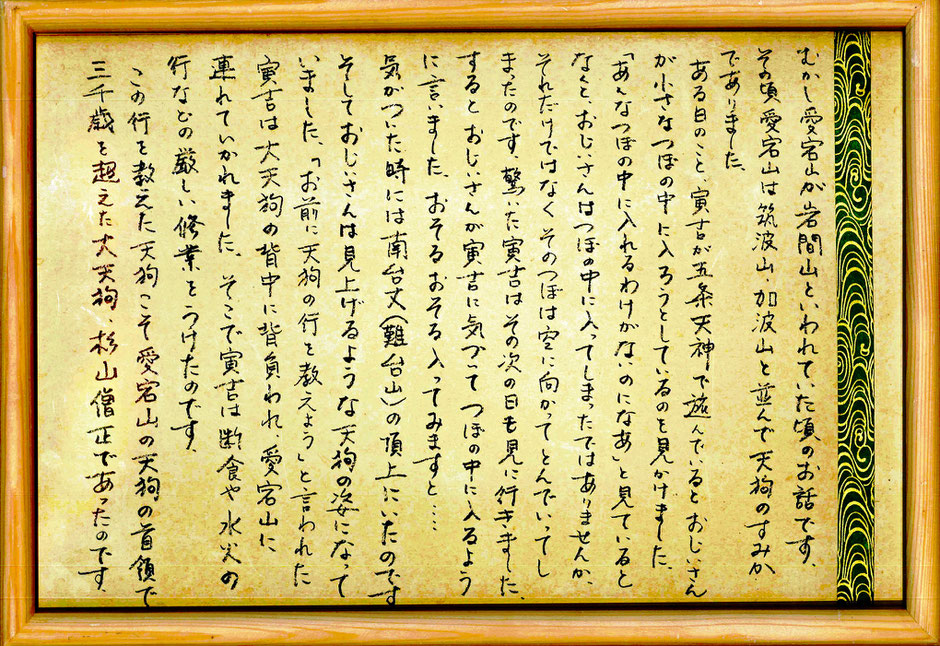 むかし愛宕山が岩間山といわれていた頃のお話です、
その頃愛宕山は筑波山、加波山と並んで天狗のすみか
でありました、
ある日のこと、寅吉が五条天神で遊んでいるとおじいさん
が小さなつぼの中に入ろうとしているのを見かけました、
「あんなつぼの中に入れるわけがないのになあ」と見ていると
なんと、おじいさんはつぼの中に入ってしまったではありませんか、
それだけではなくそのつぼは空に向かってとんでいってし
まったのです、驚いた寅吉はその次の日も見に行きました、
するとおじいさんが寅吉に気づいてつぼの中に入るよう
に言いました、おそるおそる入ってみますと‥‥
気がついた時には南台丈(難台山)の頂上にいたのです
そしておじいさんは見上げるような天狗の姿になって
いました、「お前に天狗の行を教えよう」と言われた
寅吉は大天狗の背中に背負われ、愛宕山に
連れていかれました、そこで寅吉は断食や水火の
行などの厳しい修業をうけたのです、
この行を教えた天狗こそ愛宕山の天狗の首領で
三千歳を超えた大天狗、杉山僧正であったのです、